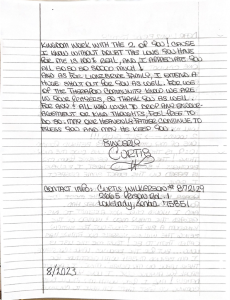 KINGDOM WORK WITH THE 2 OF YOU! CAUSE
I KNOW WITHOUT DOUBT THE LOVE YOU HAVE
FOR ME IS 100% REAL, AND I APPRECIATE YOU
ALL SO SO SO SOOO MUCH!
AND AS FOR FAMILY, I EXTEND A
HUGE SHOUT OUT FOR YOU AS WELL. FOR US
OF THE COMMUNITY KNOW WE ARE
IN YOUR PRAYERS, SO THANK YOU AS WELL.
FOR ANY & ALL WHO WISH TO DROP ANY ENCOUR-
AGEMENT OR KIND THOUGHTS, FEEL FREE TO
DO SO. MAY OUR HEAVENLY FATHER CONTINUE TO
BLESS YOU AND MAY HE KEEP YOU.
SINCERELY
CURTIS
CONTACT INFO: CURTIS WILKERSON # 872129
PRISON RD. 1
LOVELADY, TEXAS 75851
8/2023